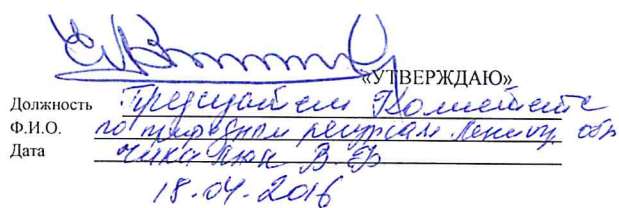 «УТВЕРЖДАЮ»
Должность Председатель Комитета
Ф.И.О. по природным ресурсам Ленинг. обл
Дата В.Ф
18.04.2016